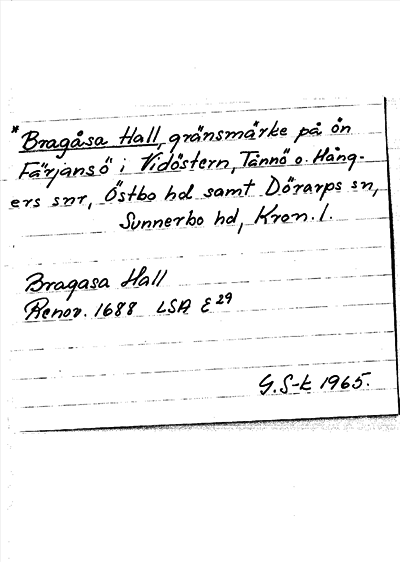 * Bragåsa Hall, gränsmärke på ön
Färjansö i Vidöstern, Tånnö o. Hång-
ers snr, Östbo hd samt Dörarps sn,
Sunnerbo hd, Kron. l.
Bragasa Hall
Renov. 1688 LSA E29
G. S-k 1965.